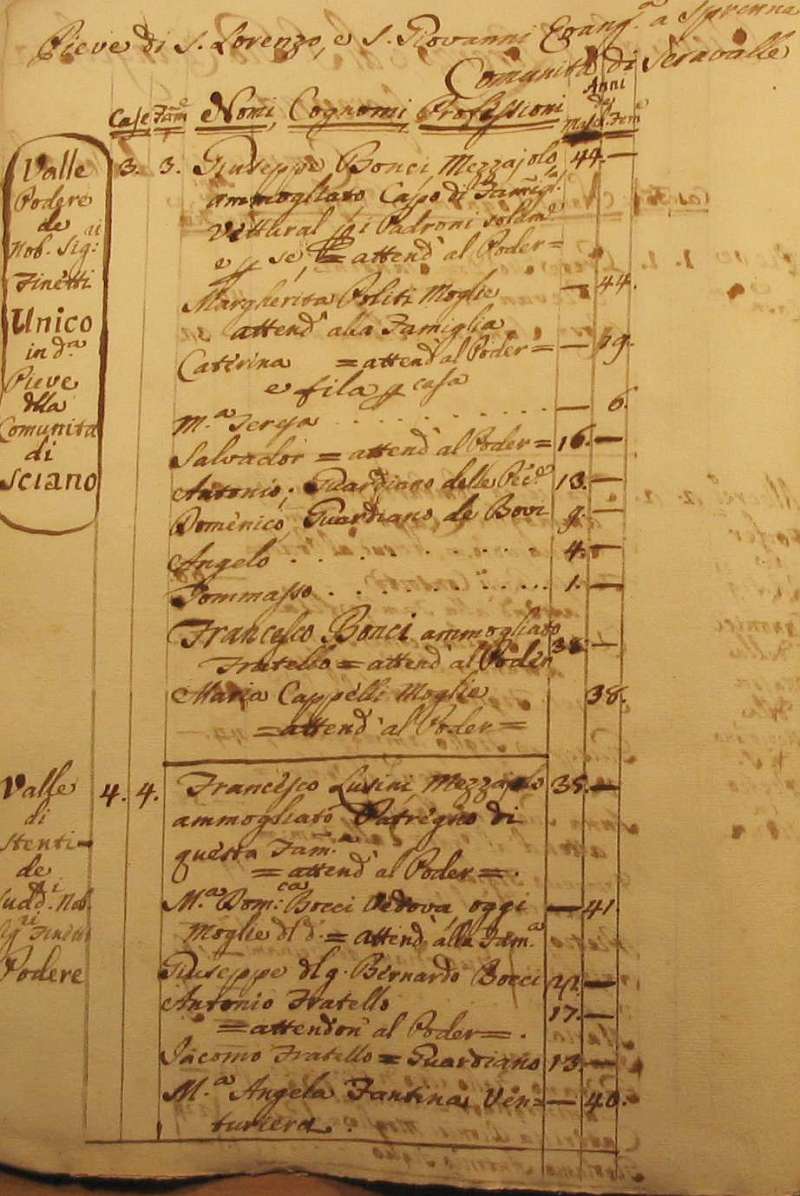 Pieve di S. Lorenzo, e S. Giovanni Evang.ª a Sprenna
Comunità di Seravalle
Case Fam.e Nomi, Cognomi, Professioni Anni
di
Mas. Fem.e
Valle 3. 3. Giuseppe Bonci Mezzajolo 44. —
Podere ammogliato Capo di Famig.ª
de Vittural Padroni
Nob. Sig.ri e se, = attend.e al Poder =
Finetti Margherita Politi Moglie — 44.
Unico attend.e alla Famiglia
in d.ª Caterina = attend.e al Poder = — 19.
Pieve e fila casa
dlla M.ª Teresa . . . . . . . . . . — 6.
Comunità Salvador = attend.e al Poder = 16. —
di Antonio, Guardiano delle 13. —
Sciano Domenico, Guardiano de Bovi 9. —
Angelo . . . . . . . . . . 4. —
Tommasso . . . . . . . . . . 1. —
Francesco Bonci ammogliato 38. —
Fratello = attend.e al Poder
Maria Cappelli Moglie 38.
= attend.e al Poder =
Valle 4. 4. Francesco Lusini Mezzajolo 35. —
di ammogliato Patregno di
Stenti- questa Fam.ª
de = attend.e al Poder = .
sudd.i Nob. M.ª Dom.ca Bocci Vedova, oggi — 41
Sig.ri Finetti Moglie dl d.º = attend.e alla Fam.ª
Podere Giuseppe dl q. Bernardo Bocci —
Antonio Fratello 17. —
= attendon al Poder = .
Jacomo Fratello = Guardiano 13 —
M.ª Angela Fantina Ven= — 40.
turiera .